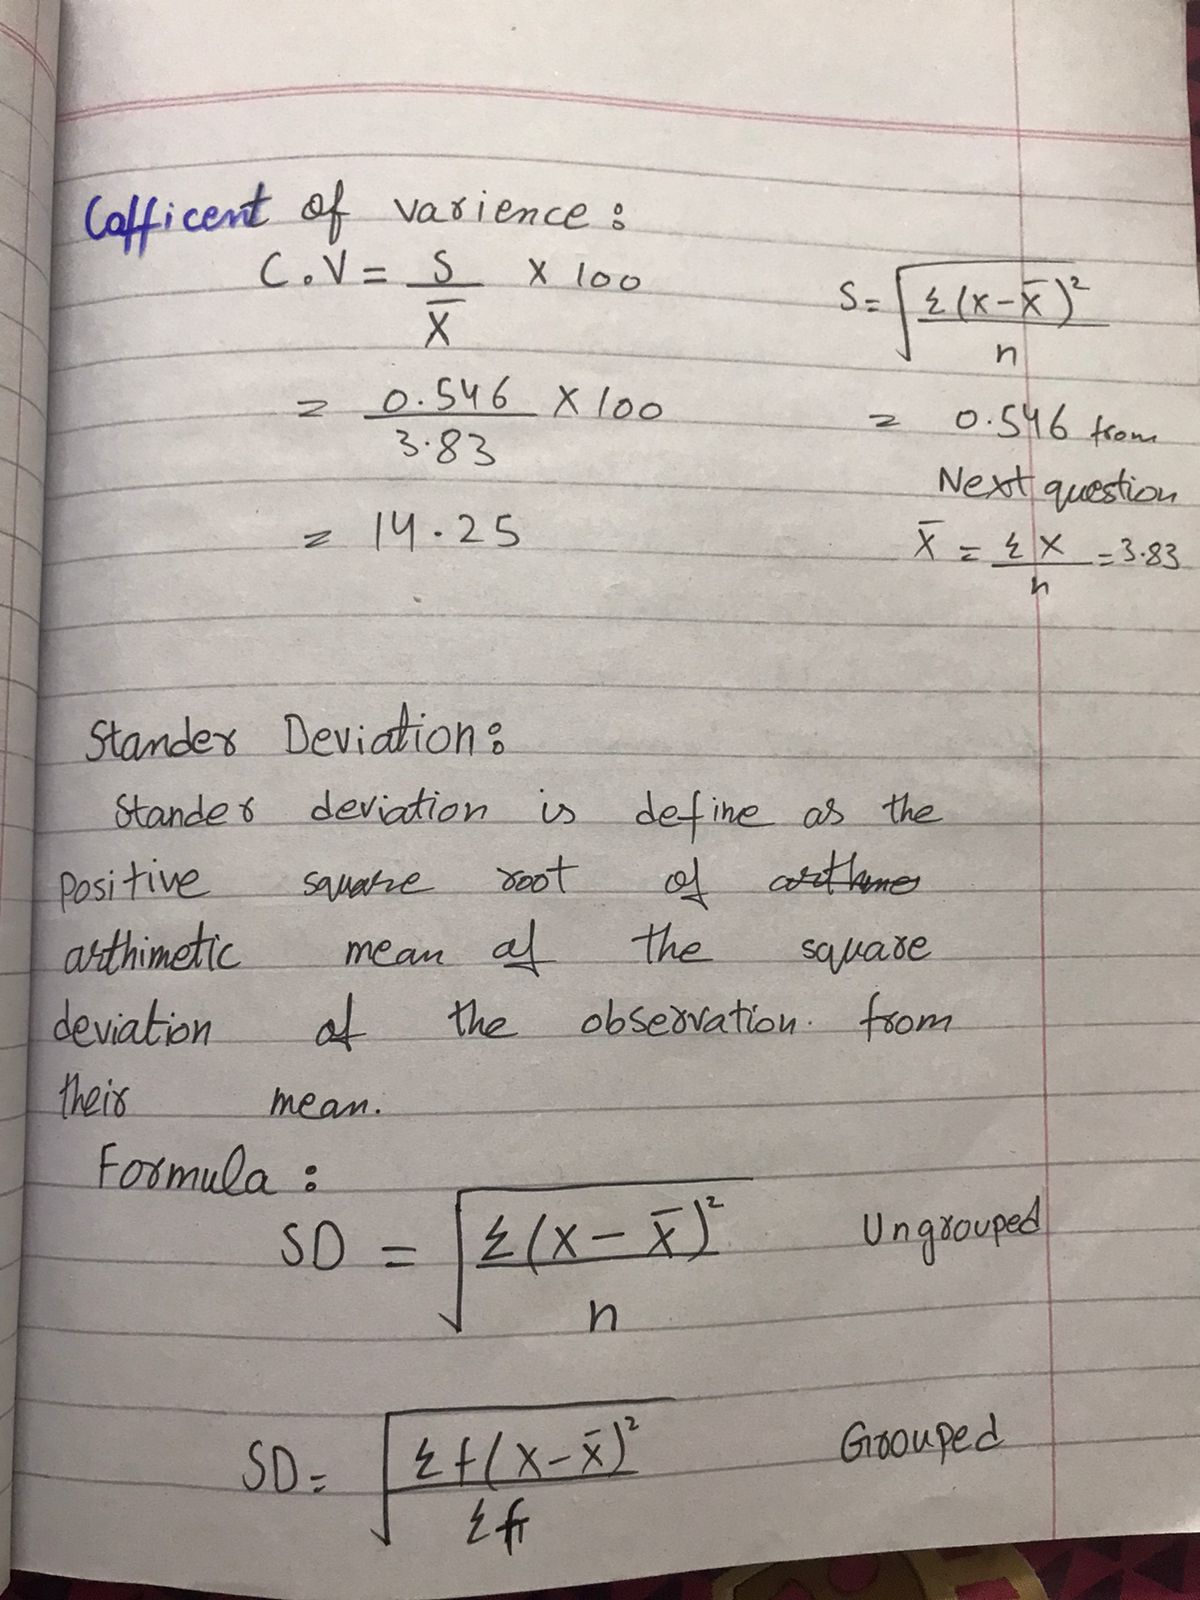 Cofficent of varience :
C.V = S / X̄ × 100
= 0.546 / 3.83 × 100
= 14.25
S = √(Σ(x-x̄)² / n)
= 0.546 from
Next question
X̄ = ΣX / n = 3.83
Stander Deviation :
Stander deviation is define as the
positive square root of
arthimetic mean of the square
deviation of the observation. from
their mean.
Formula :
SD = √(Σ(x - x̄)² / n) Ungrouped
SD = √(Σf(x-x̄)² / Σf) Grouped